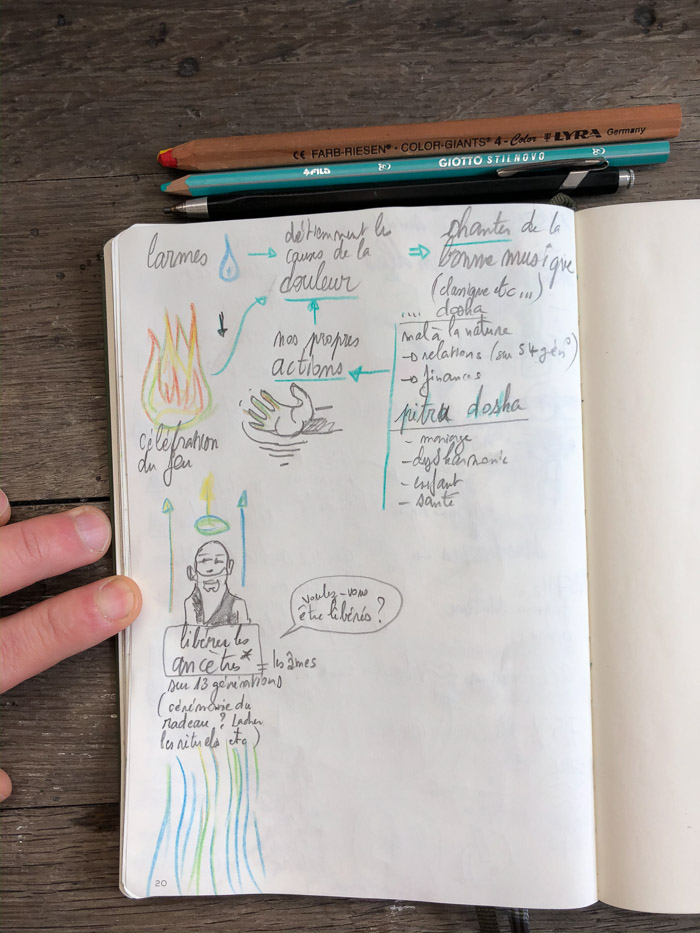 FARB-RIESEN® · COLOR-GIANTS® 4 - Color LYRA Germany
FILA GIOTTO STILNOVO
larmes
les
causes de la
douleur
chanter de la
bonne musique
(classique etc...)
.... dosha
mal à la nature
relations (sur 54 gén°)
finances
nos propres
actions
pitru dosha
- mariage
- dysharmonie
- enfant
- santé
célébration
du feu
voulez-vous
être libérés ?
libérer les
ancêtres* = les âmes
sur 13 générations
(cérémonie du
radeau ? Lâcher
les rituels etc)
20